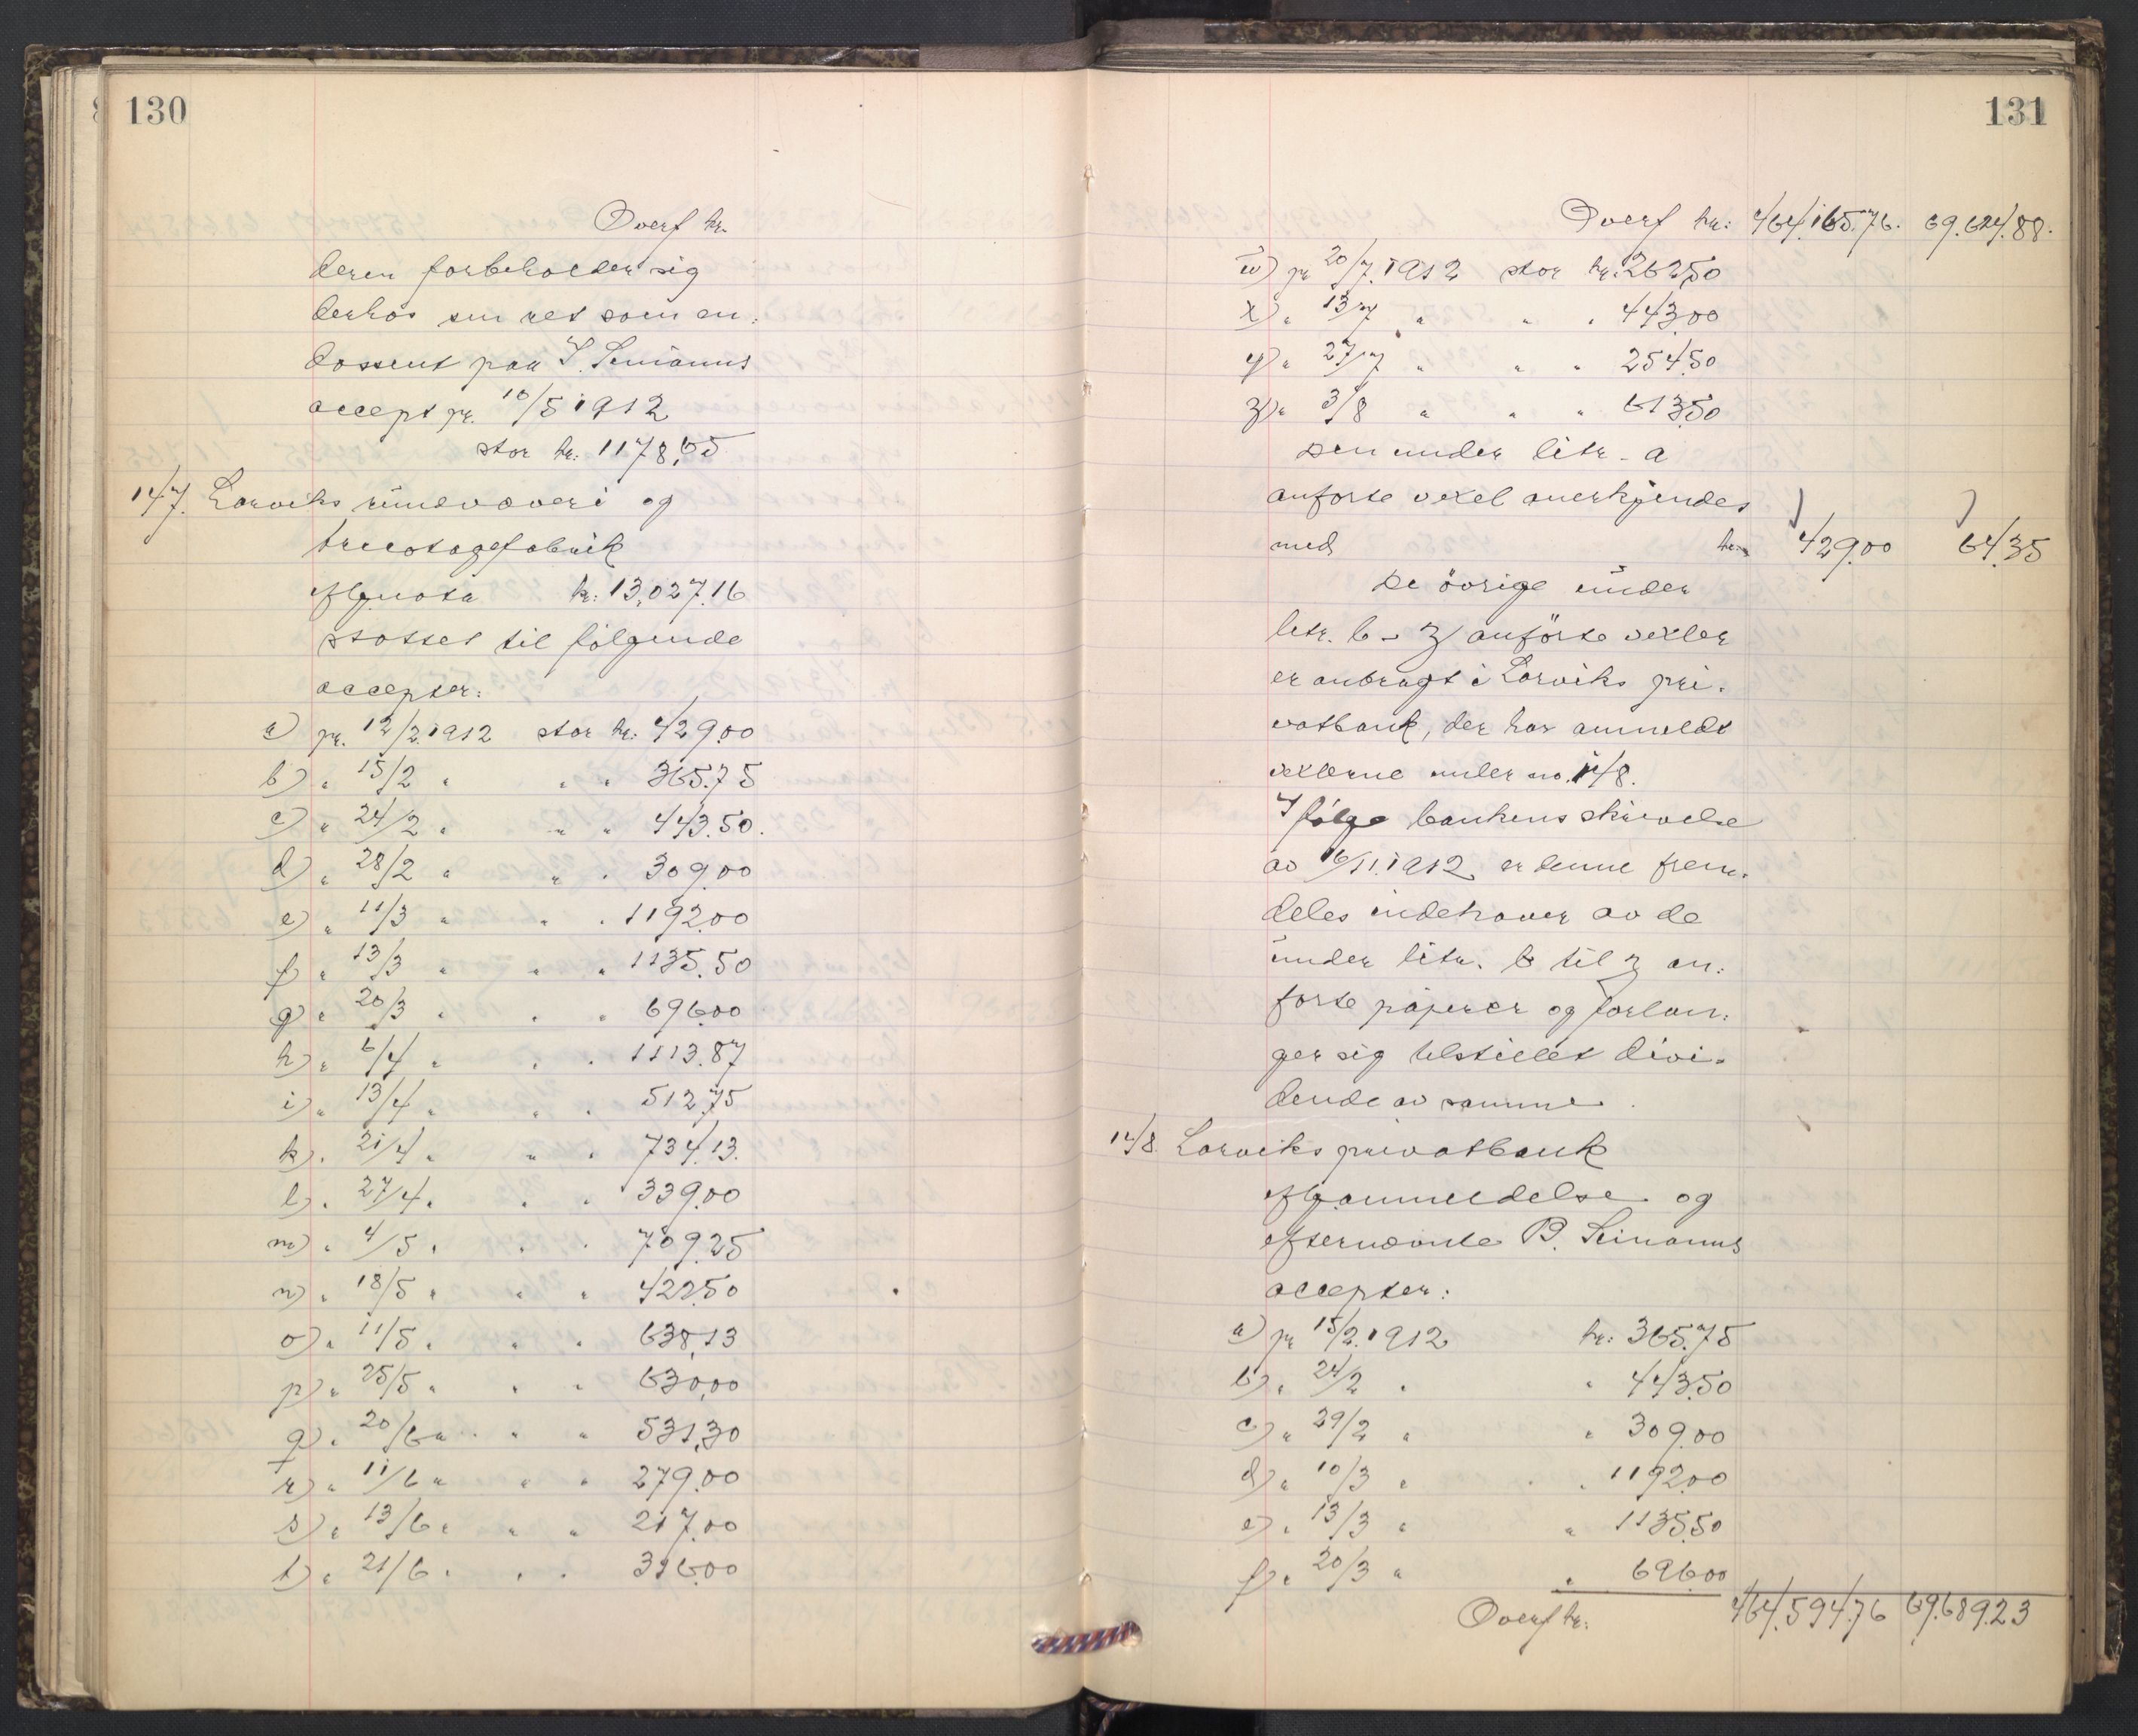 130
Overf kr.
deren forbeholder sig
derhos sin ret som en-
dossent paa I. Simanus
accept pr. 10/5 1912
stor kr. 1178,65
147. Larviks uldvæveri og
tricotagefabrik
iflg. nota kr: 13,027.16
støttet til følgende
accepter:
a) pr. 12/2.1912 stor kr: 429.00
b) " 15/2 " " " 365.75
c) " 24/2 " " " 443.50.
d) " 28/2 " " " 309.00
e) " 11/3 " " " 1192.00
f) " 13/3 " " " 1135.50
g) " 20/3 " " " 696.00
h) " 6/4 " " " 1113.87
i) " 13/4 " " " 512.75
k) " 21/4 " " " 734.13.
l) " 27/4 " " " 339.00
m) " 4/5 " " " 709.25
n) " 18/5 " " " 422.50
o) " 11/5 " " " 638,13
p) " 25/5 " " " 630,00
q) " 20/6 " " " 531,30
r) " 11/6 " " " 279.00
s) " 13/6 " " " 217.00
t) " 21/6 " " " 316.00
131
Overf kr: 464.165.76. 69.624.88.
w) pr 20/7.1912 stor kr. 262.50
x) " 13/7 " " " 443.00
y) " 27/7 " " " 254.50
z) " 3/8 " " " 613.50
Den under litr. a
anførte vexel anerkjendes
med kr. 429.00 64.35
De øvrige under
litr. b - z anførte vexler
er anbragt i Larviks pri-
vatbank, der har anmeldt
vexlerne under no. 148.
Ifølge bankens skrivelse
av 16/11.1912 er denne frem-
deles indehaver av de
under litr. b til z an-
førte papirer og forlan-
ger sig tilstillet divi-
dende av samme.
148 Larviks privatbank
iflg. anmeldelse og
efternævnte B. Simanus
accepter:
a) pr 15/2.1912 kr: 365.75
b) " 24/2 " " 443.50
c) " 29/2 " " 309.00
d) " 10/3 " " 1192.00
e) " 13/3 " " 1135.50
f) " 20/3 " " 696.00
Overf kr: 464.594.76 69.689.23